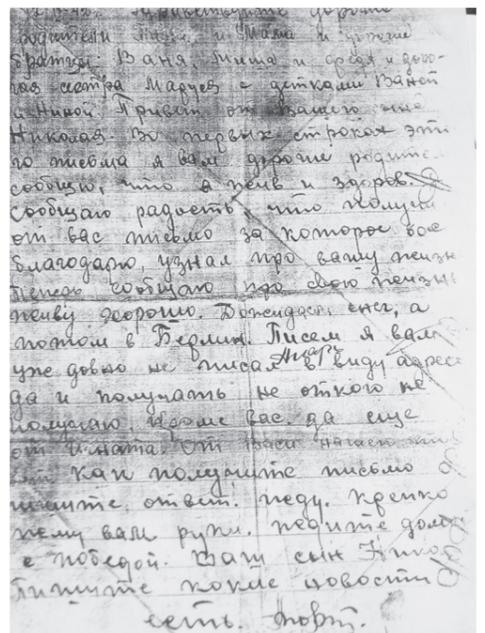 Здравствуйте дорогие
родители Папа и Мама и дорогие
братья: Ваня, Миша и Федя и доро-
гая сестра Маруся с детками Ваней
и Ниной. Привет от вашего сына
Николая во первых строках это
го письма я вам дороги родите
сообщаю, что я жив и здоров.
Сообщаю радость что получи
от вас письмо за которое вас
благодарю, узнал про вашу жизнь
Теперь сообщаю про свою жизнь
живу хорошо. снег, а
потом в Берлин. Писем я вам
уже довно не писал в виду адрес
да и получать не откого не
получаю. Кроме вас да еще
от От Васи
как получите письмо
пишите ответ. жду. Крепко
жму вам руки. ждите домо
с победой. Ваш сын Никол
Пишите какие новости
есть.